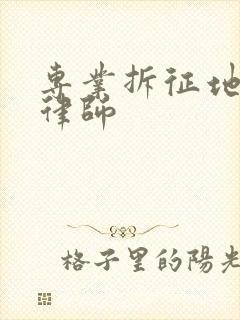 專業拆征地
律師
格子里的陽光